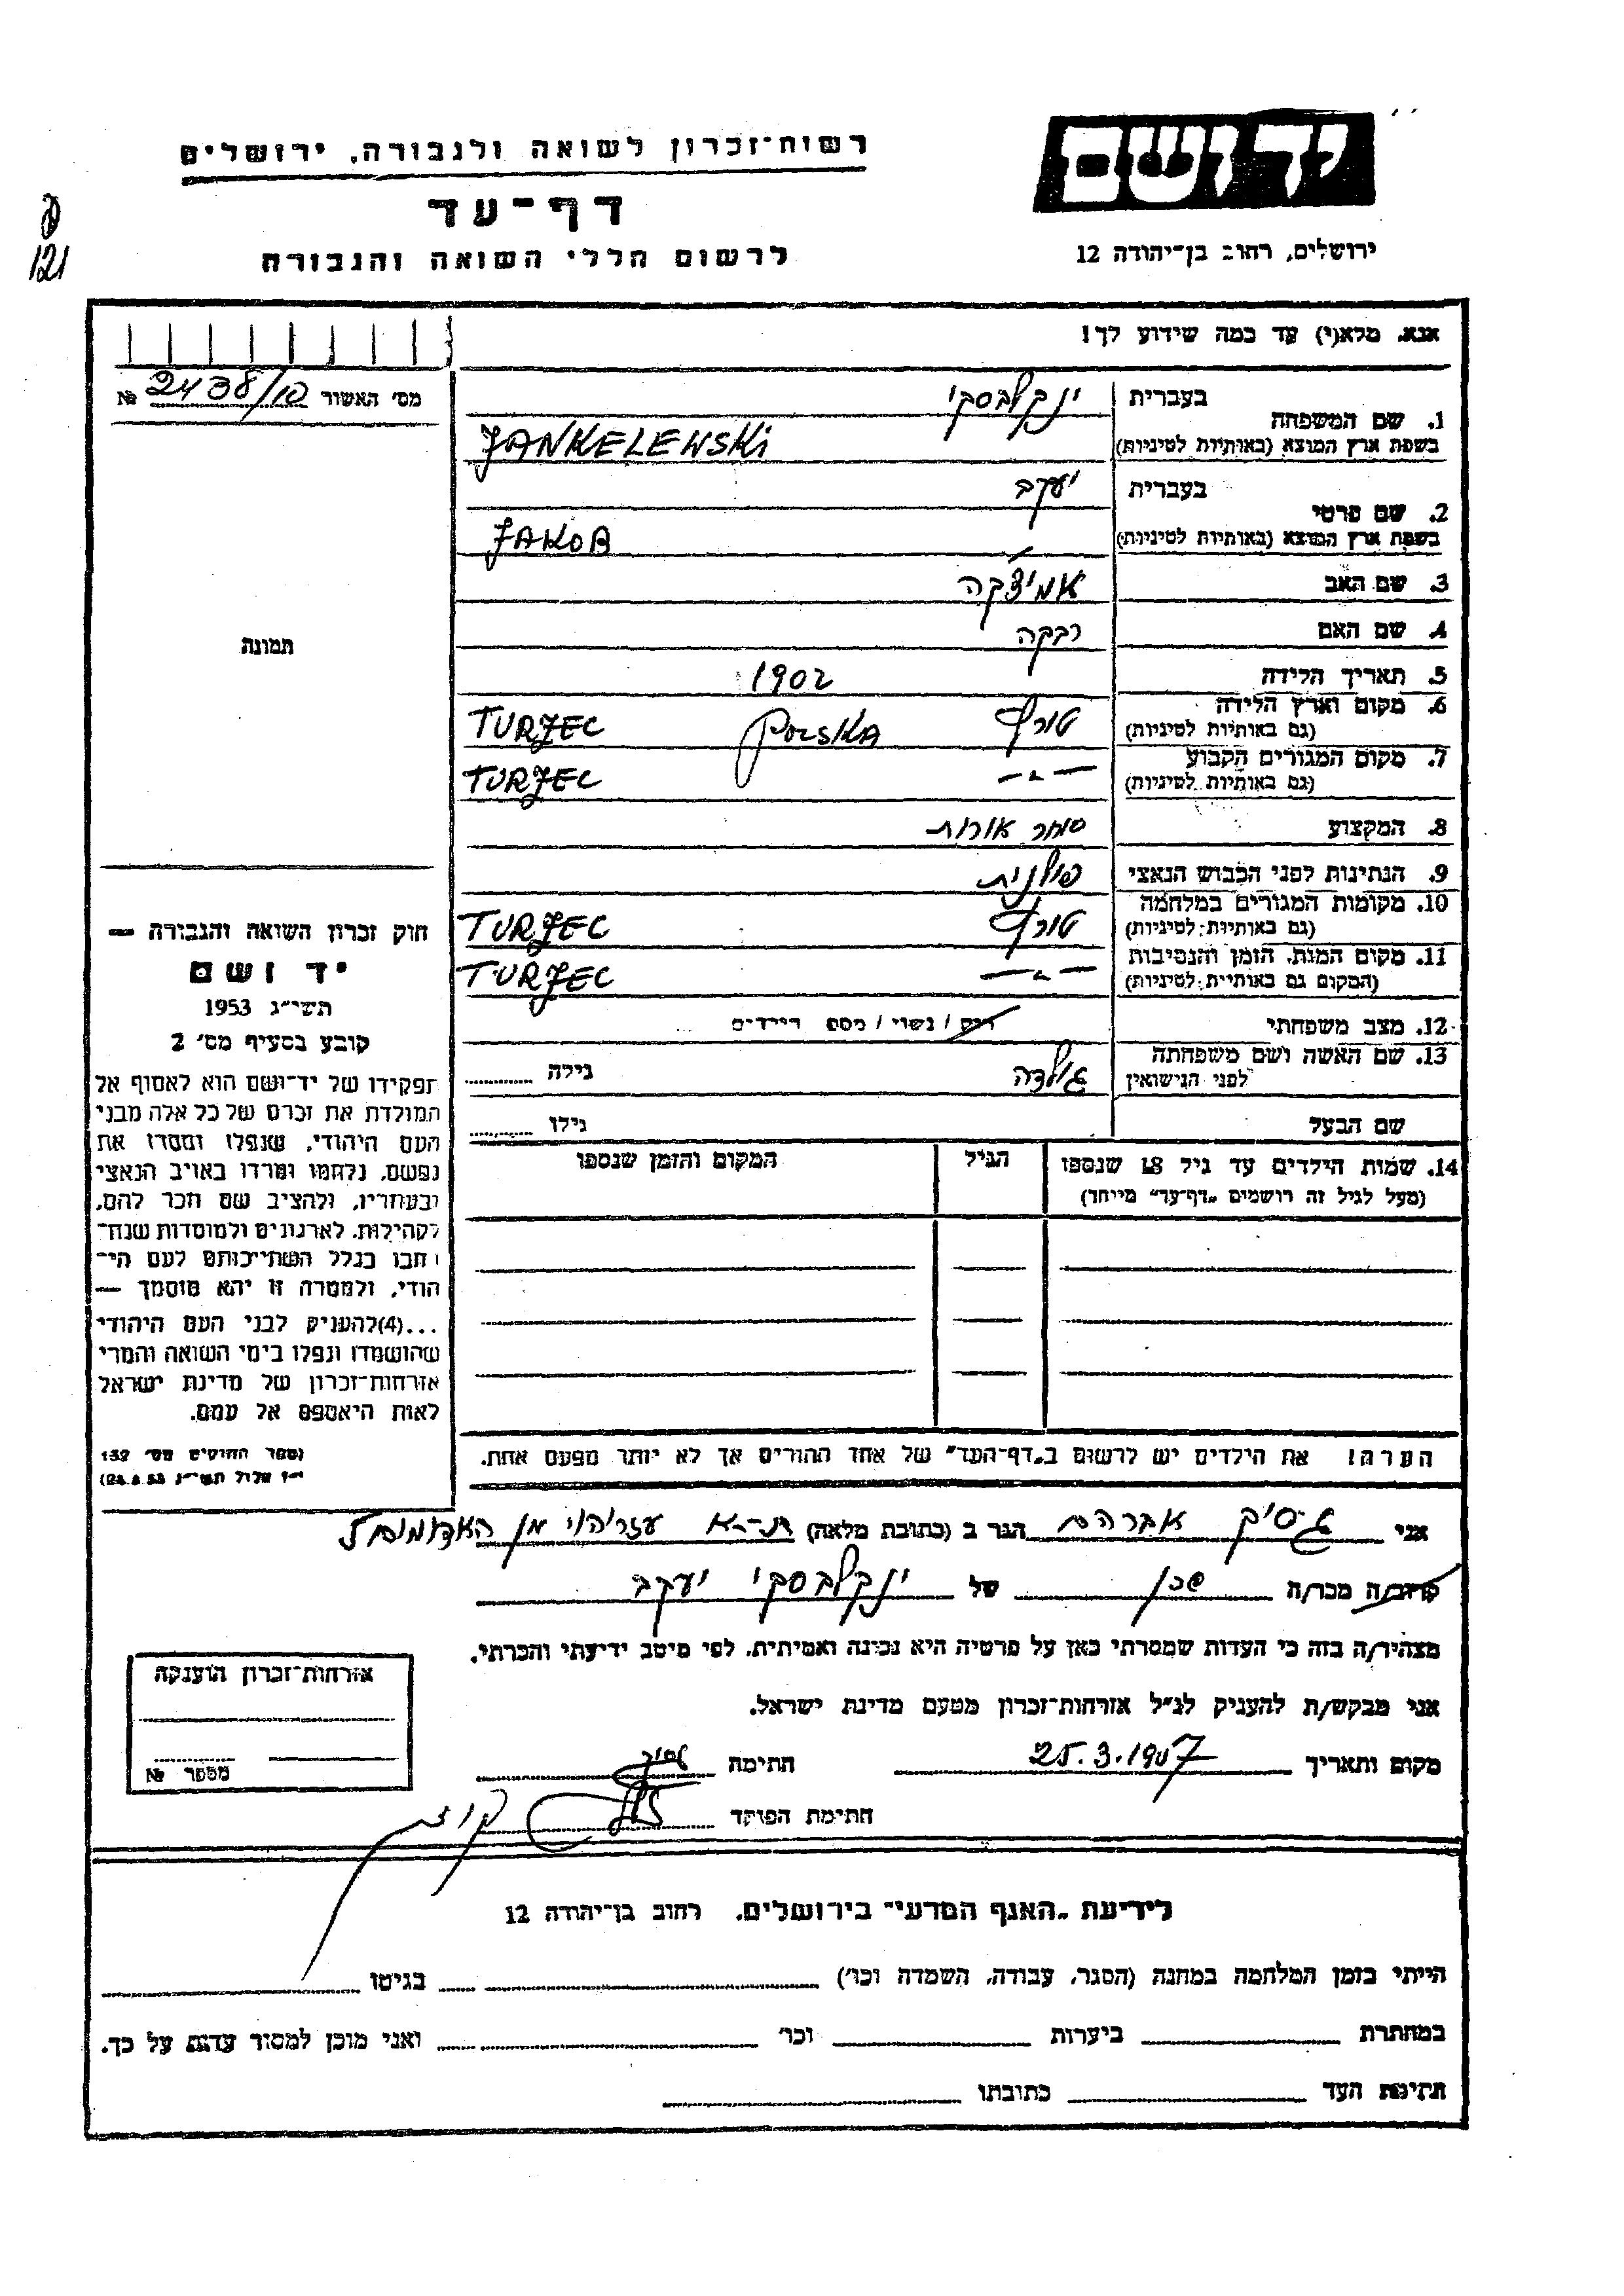 יד ושם
ירושלים, רחוב בן־יהודה 12
רשות־זכרון לשואה ולגבורה, ירושלים
דף־עד
לרשום חללי השואה והגבורה
121
אנא, מלא(י) עד כמה שידוע לך!
מס׳ האשור 2438/10 №
1. שם המשפחה בעברית ינקלבסקי
בשפת ארץ המוצא (באותיות לטיניות) JANKELEWSKI
2. שם פרטי בעברית יעקב
בשפת ארץ המוצא (באותיות לטיניות) JAKOB
3. שם האב
4. שם האם רבקה
5. תאריך הלידה 1902
6. מקום וארץ הלידה (גם באותיות לטיניות) טורץ POLSKA TURZEC
7. מקום המגורים הקבוע (גם באותיות לטיניות) — " — TURZEC
8. המקצוע סוחר אורות
9. הנתינות לפני הכבוש הנאצי פולנית
10. מקומות המגורים במלחמה (גם באותיות לטיניות) טורץ TURZEC
11. מקום המות, הזמן והנסיבות (המקום גם באותיות לטיניות) — " — TURZEC
12. מצב משפחתי רוק / נשוי / מספ הילדים
13. שם האשה ושם משפחתה לפני הנישואין גולדה גילה
שם הבעל גילו
14. שמות הילדים עד גיל 18 שנספו
(מעל לגיל זה רושמים „דף־עד" מייחד)
הגיל
המקום והזמן שנספו
תמונה
חוק זכרון השואה והגבורה —
יד ושם
תשי״ג 1953
קובע בסעיף מס׳ 2
תפקידו של יד־ושם הוא לאסוף אל
המולדת את זכרם של כל אלה מבני
העם היהודי, שנפלו ומסרו את
נפשם, נלחמו ומרדו באויב הנאצי
ובעוזריו, ולהציב שם וזכר להם,
לקהילות, לארגונים ולמוסדות שנח־
רבו בגלל השתייכותם לעם הי־
הודי, ולמטרה זו יהא מוסמך —
...(4)להעניק לבני העם היהודי
שהושמדו ונפלו בימי השואה והמרי
אזרחות־זכרון של מדינת ישראל
לאות היאספם אל עמם.
(ספר החוקים מס׳ 132
י״ז אלול תשי״ג 28.8.53)
הערה! את הילדים יש לרשום ב„דף־העד" של אחד ההורים אך לא יותר מפעם אחת.
אני גסיק אברהם הגר ב (כתובת מלאה) ת–א עזריהו מן האדומים
קרוב/ה מכר/ה שכן של ינקלבסקי יעקב
מצהיר/ה בזה כי העדות שמסרתי כאן על פרטיה היא נכונה ואמיתית, לפי מיטב ידיעתי והכרתי.
אני מבקש/ת להעניק לנ״ל אזרחות־זכרון מטעם מדינת ישראל.
מקום ותאריך 25.3.1957 חתימה
חתימת הפוקד
אזרחות־זכרון הוענקה
מספר №
לידיעת „האגף המדעי" בירושלים, רחוב בן־יהודה 12
הייתי בזמן המלחמה במחנה (הסגר, עבודה, השמדה וכו׳) בגיטו
במחתרת ביערות וכו׳ ואני מוכן למסור עדות על כך.
חתימת העד כתובתו